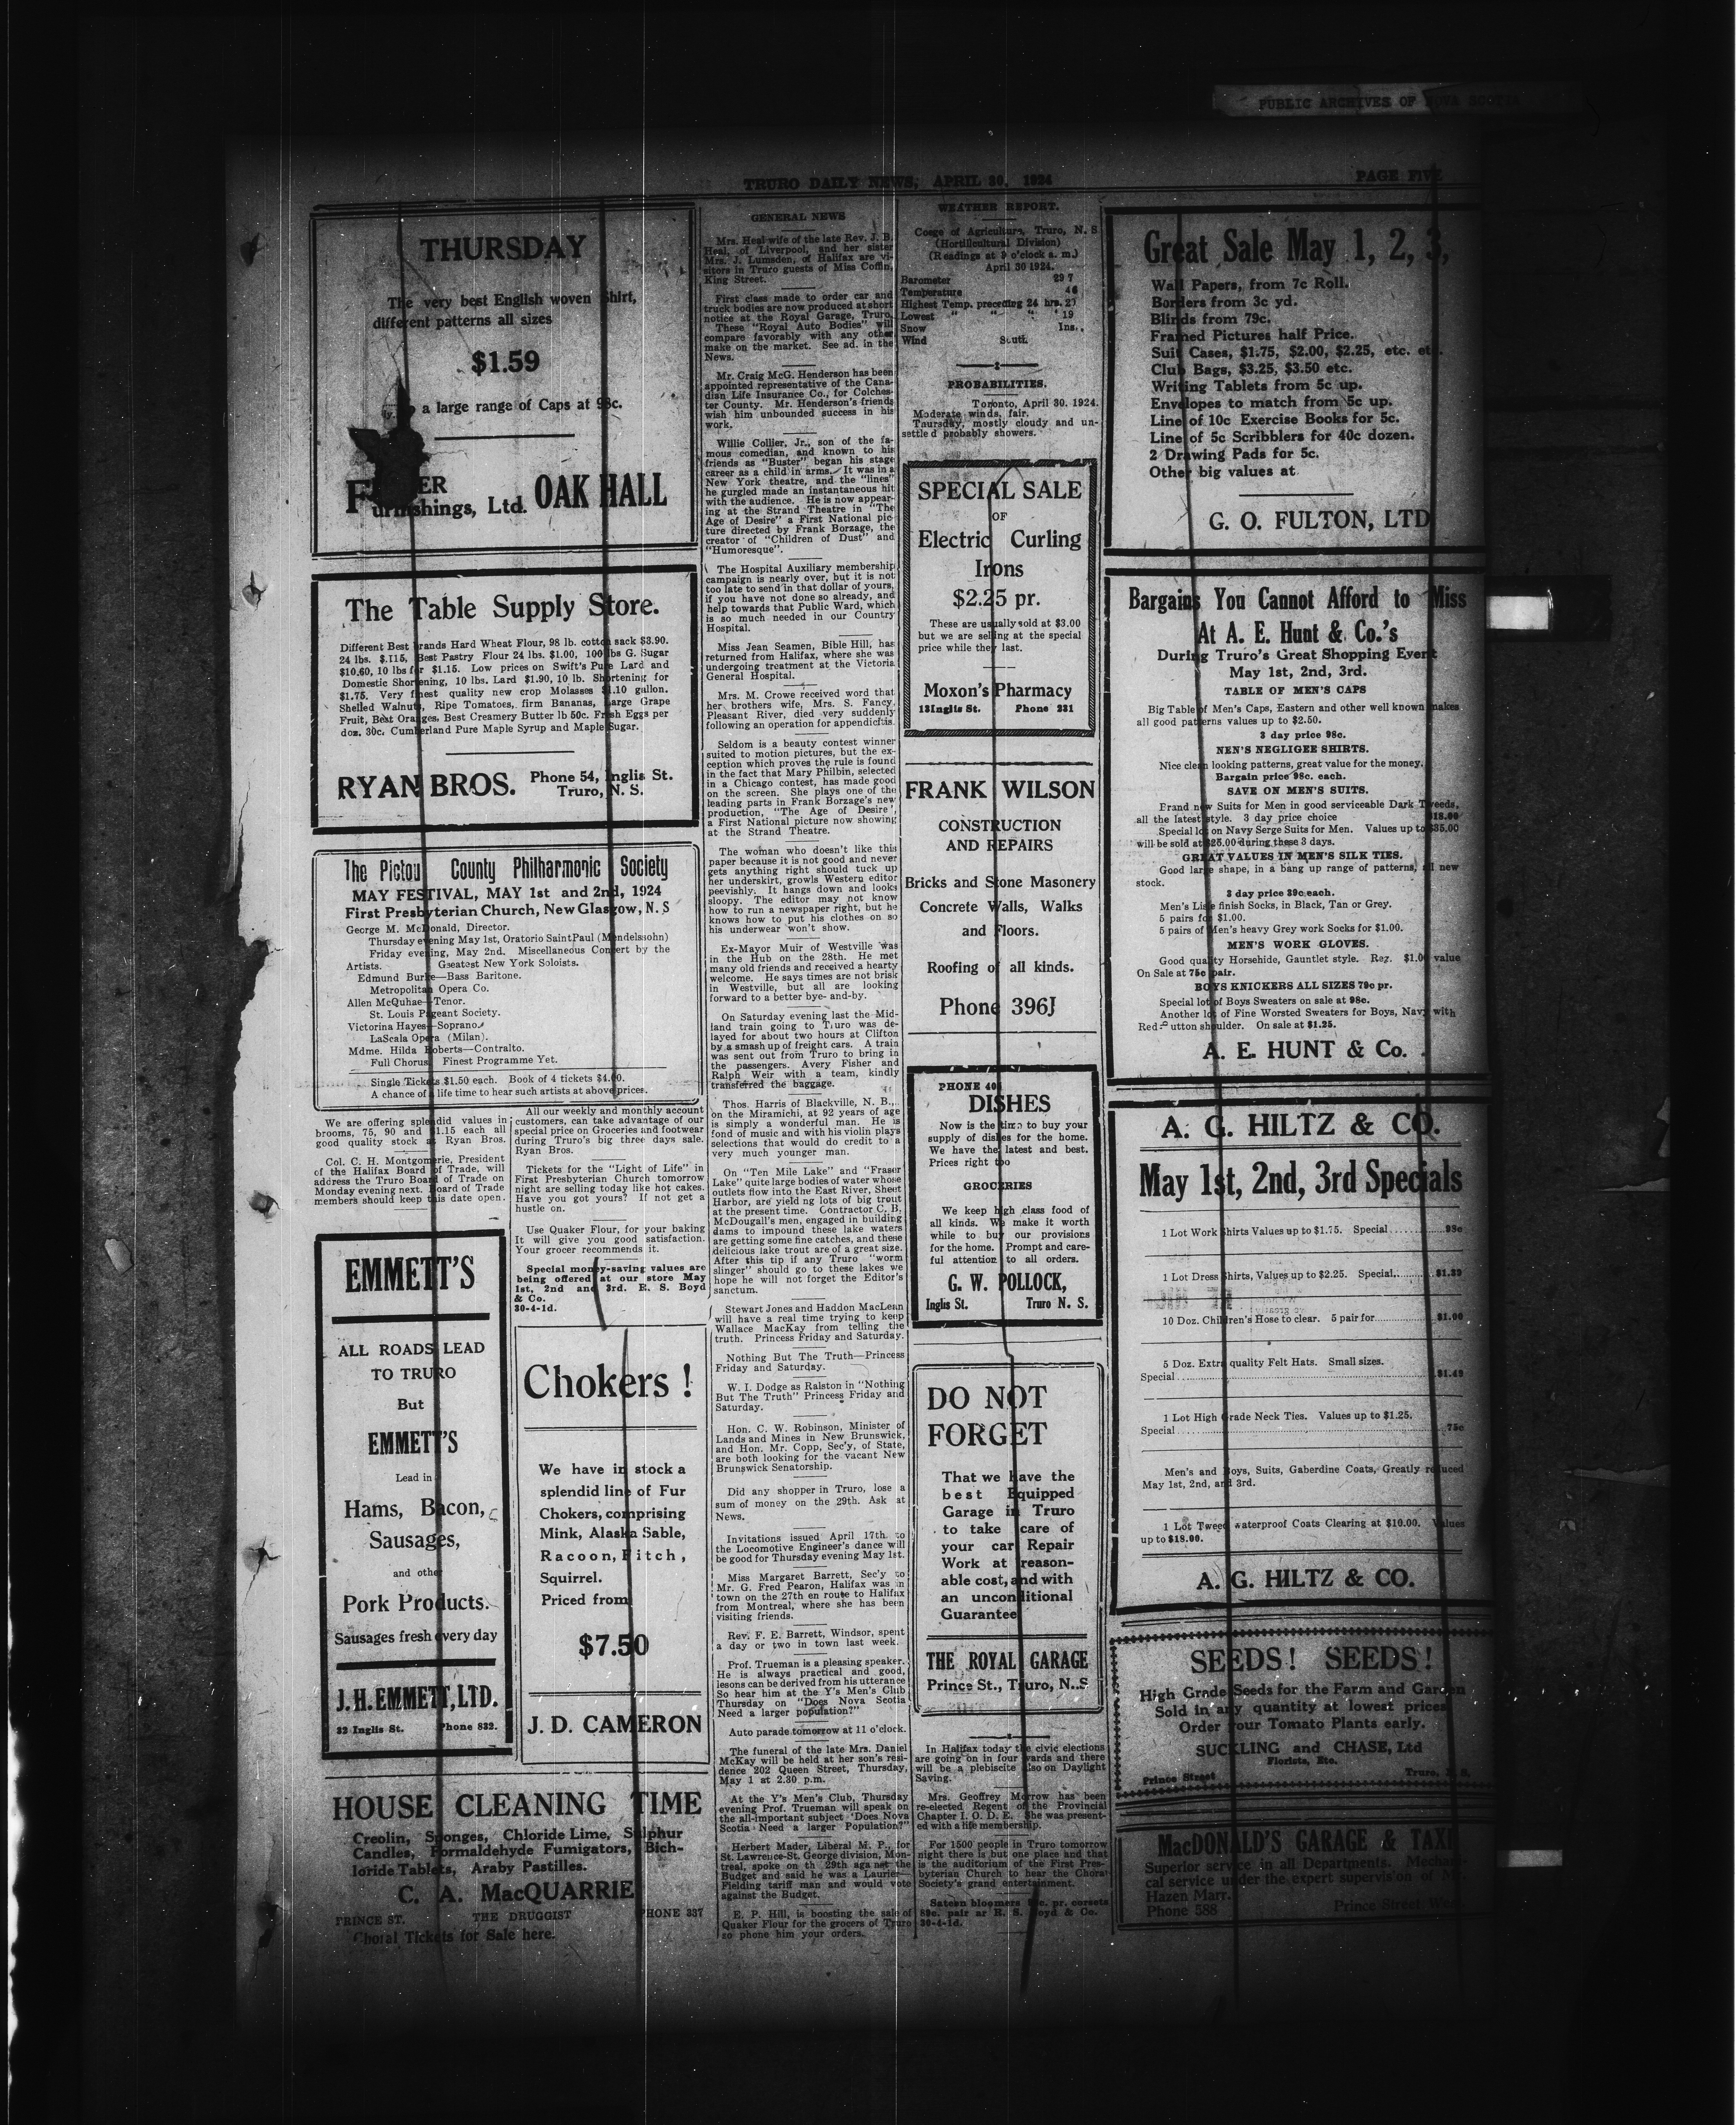 PUBLIC ARCHIVES OF NOVA SCOTIA
TRURO DAILY NEWS, APRIL 30, 1924
PAGE FIVE
THURSDAY
The very best English woven Shirt,
different patterns all sizes
$1.59
a large range of Caps at 98c.
urnishings, Ltd. OAK HALL
The Table Supply Store.
Different Best Brands Hard Wheat Flour, 98 lb. cotton sack $3.90.
24 lbs. $.115, Best Pastry Flour 24 lbs. $1.00, 100 lbs G. Sugar
$10.60, 10 lbs for $1.15. Low prices on Swift's Pure Lard and
Domestic Shortening, 10 lbs. Lard $1.90, 10 lb. Shortening for
$1.75. Very finest quality new crop Molasses $1.10 gallon.
Shelled Walnuts, Ripe Tomatoes, firm Bananas, Large Grape
Fruit, Best Oranges, Best Creamery Butter lb 50c. Fresh Eggs per
doz. 30c. Cumberland Pure Maple Syrup and Maple Sugar.
RYAN BROS. Phone 54, Inglis St.
Truro, N. S.
The Pictou County Philharmonic Society
MAY FESTIVAL, MAY 1st and 2nd, 1924
First Presbyterian Church, New Glasgow, N. S
George M. McDonald, Director.
Thursday evening May 1st, Oratorio Saint Paul (Mendelssohn)
Friday evening, May 2nd. Miscellaneous Concert by the
Artists. Greatest New York Soloists.
Edmund Burke—Bass Baritone.
Metropolitan Opera Co.
Allen McQuhae—Tenor.
St. Louis Pageant Society.
Victorina Hayes—Soprano.
LaScala Opera (Milan).
Mdme. Hilda Roberts—Contralto.
Full Chorus. Finest Programme Yet.
Single Tickets $1.50 each. Book of 4 tickets $4.00.
A chance of a life time to hear such artists at above prices.
We are offering splendid values in
brooms, 75, 90 and $1.15 each all
good quality stock at Ryan Bros.
Col. C. H. Montgomerie, President
of the Halifax Board of Trade, will
address the Truro Board of Trade on
Monday evening next. Board of Trade
members should keep this date open.
EMMETT'S
ALL ROADS LEAD
TO TRURO
But
EMMETT'S
Lead in
Hams, Bacon,
Sausages,
and other
Pork Products.
Sausages fresh every day
J. H. EMMETT, LTD.
32 Inglis St. Phone 832.
All our weekly and monthly account
customers, can take advantage of our
special price on Groceries and footwear
during Truro's big three days sale.
Ryan Bros.
Tickets for the "Light of Life" in
First Presbyterian Church tomorrow
night are selling today like hot cakes.
Have you got yours? If not get a
hustle on.
Use Quaker Flour, for your baking
It will give you good satisfaction.
Your grocer recommends it.
Special money-saving values are
being offered at our store May
1st, 2nd and 3rd. R. S. Boyd
& Co.
30-4-1d.
Chokers !
We have in stock a
splendid line of Fur
Chokers, comprising
Mink, Alaska Sable,
Racoon, Fitch,
Squirrel.
Priced from
$7.50
J. D. CAMERON
HOUSE CLEANING TIME
Creolin, Sponges, Chloride Lime, Sulphur
Candles, Formaldehyde Fumigators, Bich-
loride Tablets, Araby Pastilles.
C. A. MacQUARRIE
PRINCE ST. THE DRUGGIST PHONE 337
Choral Tickets for Sale here.
GENERAL NEWS
Mrs. Heal wife of the late Rev. J. B.
Heal, of Liverpool, and her sister
Mrs. J. Lumsden, of Halifax are vi-
sitors in Truro guests of Miss Coffin,
King Street.
First class made to order car and
truck bodies are now produced at short
notice at the Royal Garage, Truro.
These "Royal Auto Bodies" will
compare favorably with any other
make on the market. See ad. in the
News.
Mr. Craig McG. Henderson has been
appointed representative of the Cana-
dian Life Insurance Co., for Colches-
ter County. Mr. Henderson's friends
wish him unbounded success in his
work.
Willie Collier, Jr., son of the fa-
mous comedian, and known to his
friends as "Buster" began his stage
career as a child in arms. It was in a
New York theatre, and the "lines"
he gurgled made an instantaneous hit
with the audience. He is now appear-
ing at the Strand Theatre in "The
Age of Desire" a First National pic-
ture directed by Frank Borzage, the
creator of "Children of Dust" and
"Humoresque".
The Hospital Auxiliary membership
campaign is nearly over, but it is not
too late to send in that dollar of yours,
if you have not done so already, and
help towards that Public Ward, which
is so much needed in our Country
Hospital.
Miss Jean Seamen, Bible Hill, has
returned from Halifax, where she was
undergoing treatment at the Victoria
General Hospital.
Mrs. M. Crowe received word that
her brothers wife, Mrs. S. Fancy,
Pleasant River, died very suddenly
following an operation for appendicitis.
Seldom is a beauty contest winner
suited to motion pictures, but the ex-
ception which proves the rule is found
in the fact that Mary Philbin, selected
in a Chicago contest, has made good
on the screen. She plays one of the
leading parts in Frank Borzage's new
production, "The Age of Desire',
a First National picture now showing
at the Strand Theatre.
The woman who doesn't like this
paper because it is not good and never
gets anything right should tuck up
her underskirt, growls Western editor
peevishly. It hangs down and looks
sloopy. The editor may not know
how to run a newspaper right, but he
knows how to put his clothes on so
his underwear won't show.
Ex-Mayor Muir of Westville was
in the Hub on the 28th. He met
many old friends and received a hearty
welcome. He says times are not brisk
in Westville, but all are looking
forward to a better bye-and-by.
On Saturday evening last the Mid-
land train going to Truro was de-
layed for about two hours at Clifton
by a smash up of freight cars. A train
was sent out from Truro to bring in
the passengers. Avery Fisher and
Ralph Weir with a team, kindly
transferred the baggage.
Thos. Harris of Blackville, N. B.,
on the Miramichi, at 92 years of age
is simply a wonderful man. He is
fond of music and with his violin plays
selections that would do credit to a
very much younger man.
On "Ten Mile Lake" and "Fraser
Lake" quite large bodies of water whose
outlets flow into the East River, Sheet
Harbor, are yielding lots of big trout
at the present time. Contractor C. B.
McDougall's men, engaged in building
dams to impound these lake waters
are getting some fine catches, and these
delicious lake trout are of a great size.
After this tip if any Truro "worm
slinger" should go to these lakes we
hope he will not forget the Editor's
sanctum.
Stewart Jones and Haddon MacLean
will have a real time trying to keep
Wallace MacKay from telling the
truth. Princess Friday and Saturday.
Nothing But The Truth—Princess
Friday and Saturday.
W. I. Dodge as Ralston in "Nothing
But The Truth" Princess Friday and
Saturday.
Hon. C. W. Robinson, Minister of
Lands and Mines in New Brunswick,
and Hon. Mr. Copp, Sec'y, of State,
are both looking for the vacant New
Brunswick Senatorship.
Did any shopper in Truro, lose a
sum of money on the 29th. Ask at
News.
Invitations issued April 17th to
the Locomotive Engineer's dance will
be good for Thursday evening May 1st.
Miss Margaret Barrett, Sec'y to
Mr. G. Fred Pearon, Halifax was in
town on the 27th en route to Halifax
from Montreal, where she has been
visiting friends.
Rev. F. E. Barrett, Windsor, spent
a day or two in town last week.
Prof. Trueman is a pleasing speaker.
He is always practical and good,
lesons can be derived from his utterance
So hear him at the Y's Men's Club
Thursday on "Does Nova Scotia
Need a larger population?"
Auto parade tomorrow at 11 o'clock.
The funeral of the late Mrs. Daniel
McKay will be held at her son's resi-
dence 202 Queen Street, Thursday,
May 1 at 2.30 p.m.
At the Y's Men's Club, Thursday
evening Prof. Trueman will speak on
the all-important subject 'Does Nova
Scotia Need a larger Population?"
Herbert Mader, Liberal M. P., for
St. Lawrence-St. George division, Mon-
treal, spoke on th 29th against the
Budget and said he was a Laurier—
Fielding tariff man and would vote
against the Budget.
E. P. Hill, is boosting the sale of
Quaker Flour for the grocers of Truro
so phone him your orders.
WEATHER REPORT.
Coege of Agriculture, Truro, N. S
(Hortilcultural Division)
(Readings at 9 o'clock a. m.)
April 30 1924.
Barometer 29 7
Temperature 46
Highest Temp. preceding 24 hrs. 27
Lowest " " " ' 19
Snow Ins.,
Wind South
PROBABILITIES.
Toronto, April 30. 1924.
Moderate winds, fair.
Thursday, mostly cloudy and un-
settled probably showers.
SPECIAL SALE
OF
Electric Curling
Irons
$2.25 pr.
These are usually sold at $3.00
but we are selling at the special
price while they last.
Moxon's Pharmacy
13 Inglis St. Phone 231
FRANK WILSON
CONSTRUCTION
AND REPAIRS
Bricks and Stone Masonery
Concrete Walls, Walks
and Floors.
Roofing of all kinds.
Phone 396J
PHONE 406
DISHES
Now is the time to buy your
supply of dishes for the home.
We have the latest and best.
Prices right too
GROCERIES
We keep high class food of
all kinds. We make it worth
while to buy our provisions
for the home. Prompt and care-
ful attention to all orders.
G. W. POLLOCK,
Inglis St. Truro N. S.
DO NOT
FORGET
That we have the
best Equipped
Garage in Truro
to take care of
your car Repair
Work at reason-
able cost, and with
an unconditional
Guarantee
THE ROYAL GARAGE
Prince St., Truro, N..S
In Halifax today the civic elections
are going on in four wards and there
will be a plebiscite also on Daylight
Saving.
Mrs. Geoffrey Morrow has been
re-elected Regent of the Provincial
Chapter I. O. D. E. She was present-
ed with a life membership.
For 1500 people in Truro tomorrow
night there is but one place and that
is the auditorium of the First Pres-
byterian Church to hear the Choral
Society's grand entertainment.
Sateen bloomers c. pr. corsets
89c. pair ar R. S. Boyd & Co.
30-4-1d.
Great Sale May 1, 2, 3,
Wall Papers, from 7c Roll.
Borders from 3c yd.
Blinds from 79c.
Framed Pictures half Price.
Suit Cases, $1.75, $2.00, $2.25, etc. etc.
Club Bags, $3.25, $3.50 etc.
Writing Tablets from 5c up.
Envelopes to match from 5c up.
Line of 10c Exercise Books for 5c.
Line of 5c Scribblers for 40c dozen.
2 Drawing Pads for 5c.
Other big values at
G. O. FULTON, LTD
Bargains You Cannot Afford to Miss
At A. E. Hunt & Co.'s
During Truro's Great Shopping Event
May 1st, 2nd, 3rd.
TABLE OF MEN'S CAPS
Big Table of Men's Caps, Eastern and other well known makes
all good patterns values up to $2.50.
3 day price 98c.
NEN'S NEGLIGEE SHIRTS.
Nice clean looking patterns, great value for the money.
Bargain price 98c. each.
SAVE ON MEN'S SUITS.
Brand new Suits for Men in good serviceable Dark Tweeds,
all the latest style. 3 day price choice $18.00
Special lot on Navy Serge Suits for Men. Values up to $35.00
will be sold at $25.00 during these 3 days.
GREAT VALUES IN MEN'S SILK TIES.
Good large shape, in a bang up range of patterns, all new
stock.
3 day price 39c. each.
Men's Lisle finish Socks, in Black, Tan or Grey.
5 pairs for $1.00.
5 pairs of Men's heavy Grey work Socks for $1.00.
MEN'S WORK GLOVES.
Good quality Horsehide, Gauntlet style. Reg. $1.00 value
On Sale at 75c pair.
BOYS KNICKERS ALL SIZES 79c pr.
Special lot of Boys Sweaters on sale at 98c.
Another lot of Fine Worsted Sweaters for Boys, Navy with
Red utton shoulder. On sale at $1.25.
A. E. HUNT & Co.
A. G. HILTZ & CO.
May 1st, 2nd, 3rd Specials
1 Lot Work Shirts Values up to $1.75. Special ........... 98c
1 Lot Dress Shirts, Values up to $2.25. Special........... $1.39
10 Doz. Children's Hose to clear. 5 pair for............... $1.00
5 Doz. Extra quality Felt Hats. Small sizes.
Special ............... $1.49
1 Lot High Grade Neck Ties. Values up to $1.25.
Special ............... 75c
Men's and Boys, Suits, Gaberdine Coats, Greatly reduced
May 1st, 2nd, and 3rd.
1 Lot Tweed waterproof Coats Clearing at $10.00. Values
up to $18.00.
A. G. HILTZ & CO.
SEEDS! SEEDS!
High Grade Seeds for the Farm and Garden
Sold in any quantity at lowest prices
Order your Tomato Plants early.
SUCKLING and CHASE, Ltd
Florists, Etc.
Prince Street Truro, N. S.
MacDONALD'S GARAGE & TAXI
Superior service in all Departments. Mechani-
cal service under the expert supervis'on of Mr.
Hazen Marr.
Phone 588 Prince Street West